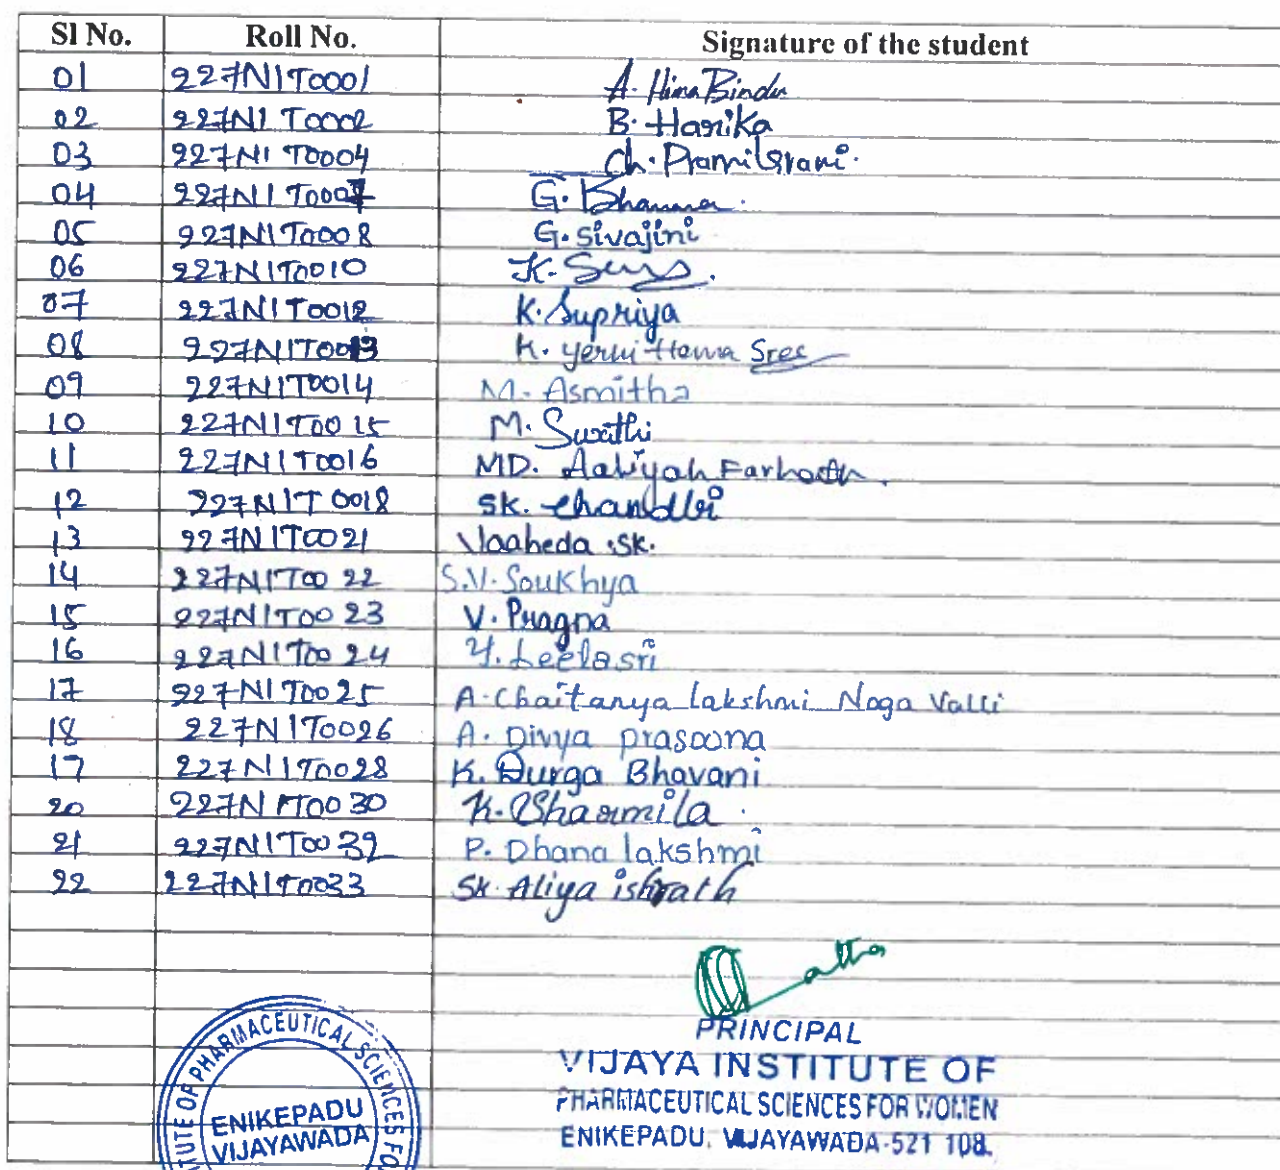 Sl No. Roll No. Signature of the student
01 227N1T0001 A. Hima Bindu
02 227N1T0002 B. Harika
03 227N1T0004 Ch. Pramilarani.
04 227N1T0007 G. Bhavana.
05 227N1T0008 G. Sivajini
06 227N1T0010 K.
07 227N1T0012 K. Supriya
08 227N1T0013 K. Hema Sree
09 227N1T0014 M. Asmitha
10 227N1T0015 M. Swathi
11 227N1T0016 MD. Aaliyah Farhath.
12 227N1T0018 SK. Chandbi
13 227N1T0021 Vaaheda .SK.
14 227N1T0022 S.V. Soukhya
15 227N1T0023 V. Pragna
16 227N1T0024 Y. Leelasri
17 227N1T0025 A. Chaitanya lakshmi Naga Valli
18 227N1T0026 A. Divya prasoona
17 227N1T0028 K. Durga Bhavani
20 227N1T0030 K. Sharmila.
21 227N1T0032 P. Dhana lakshmi
22 227N1T0033 SK. Aliya ishrath
PRINCIPAL
VIJAYA INSTITUTE OF
PHARMACEUTICAL SCIENCES FOR WOMEN
ENIKEPADU, VIJAYAWADA-521 108.
OF PHARMACEUTICAL SCIENCES
ENIKEPADU
VIJAYAWADA